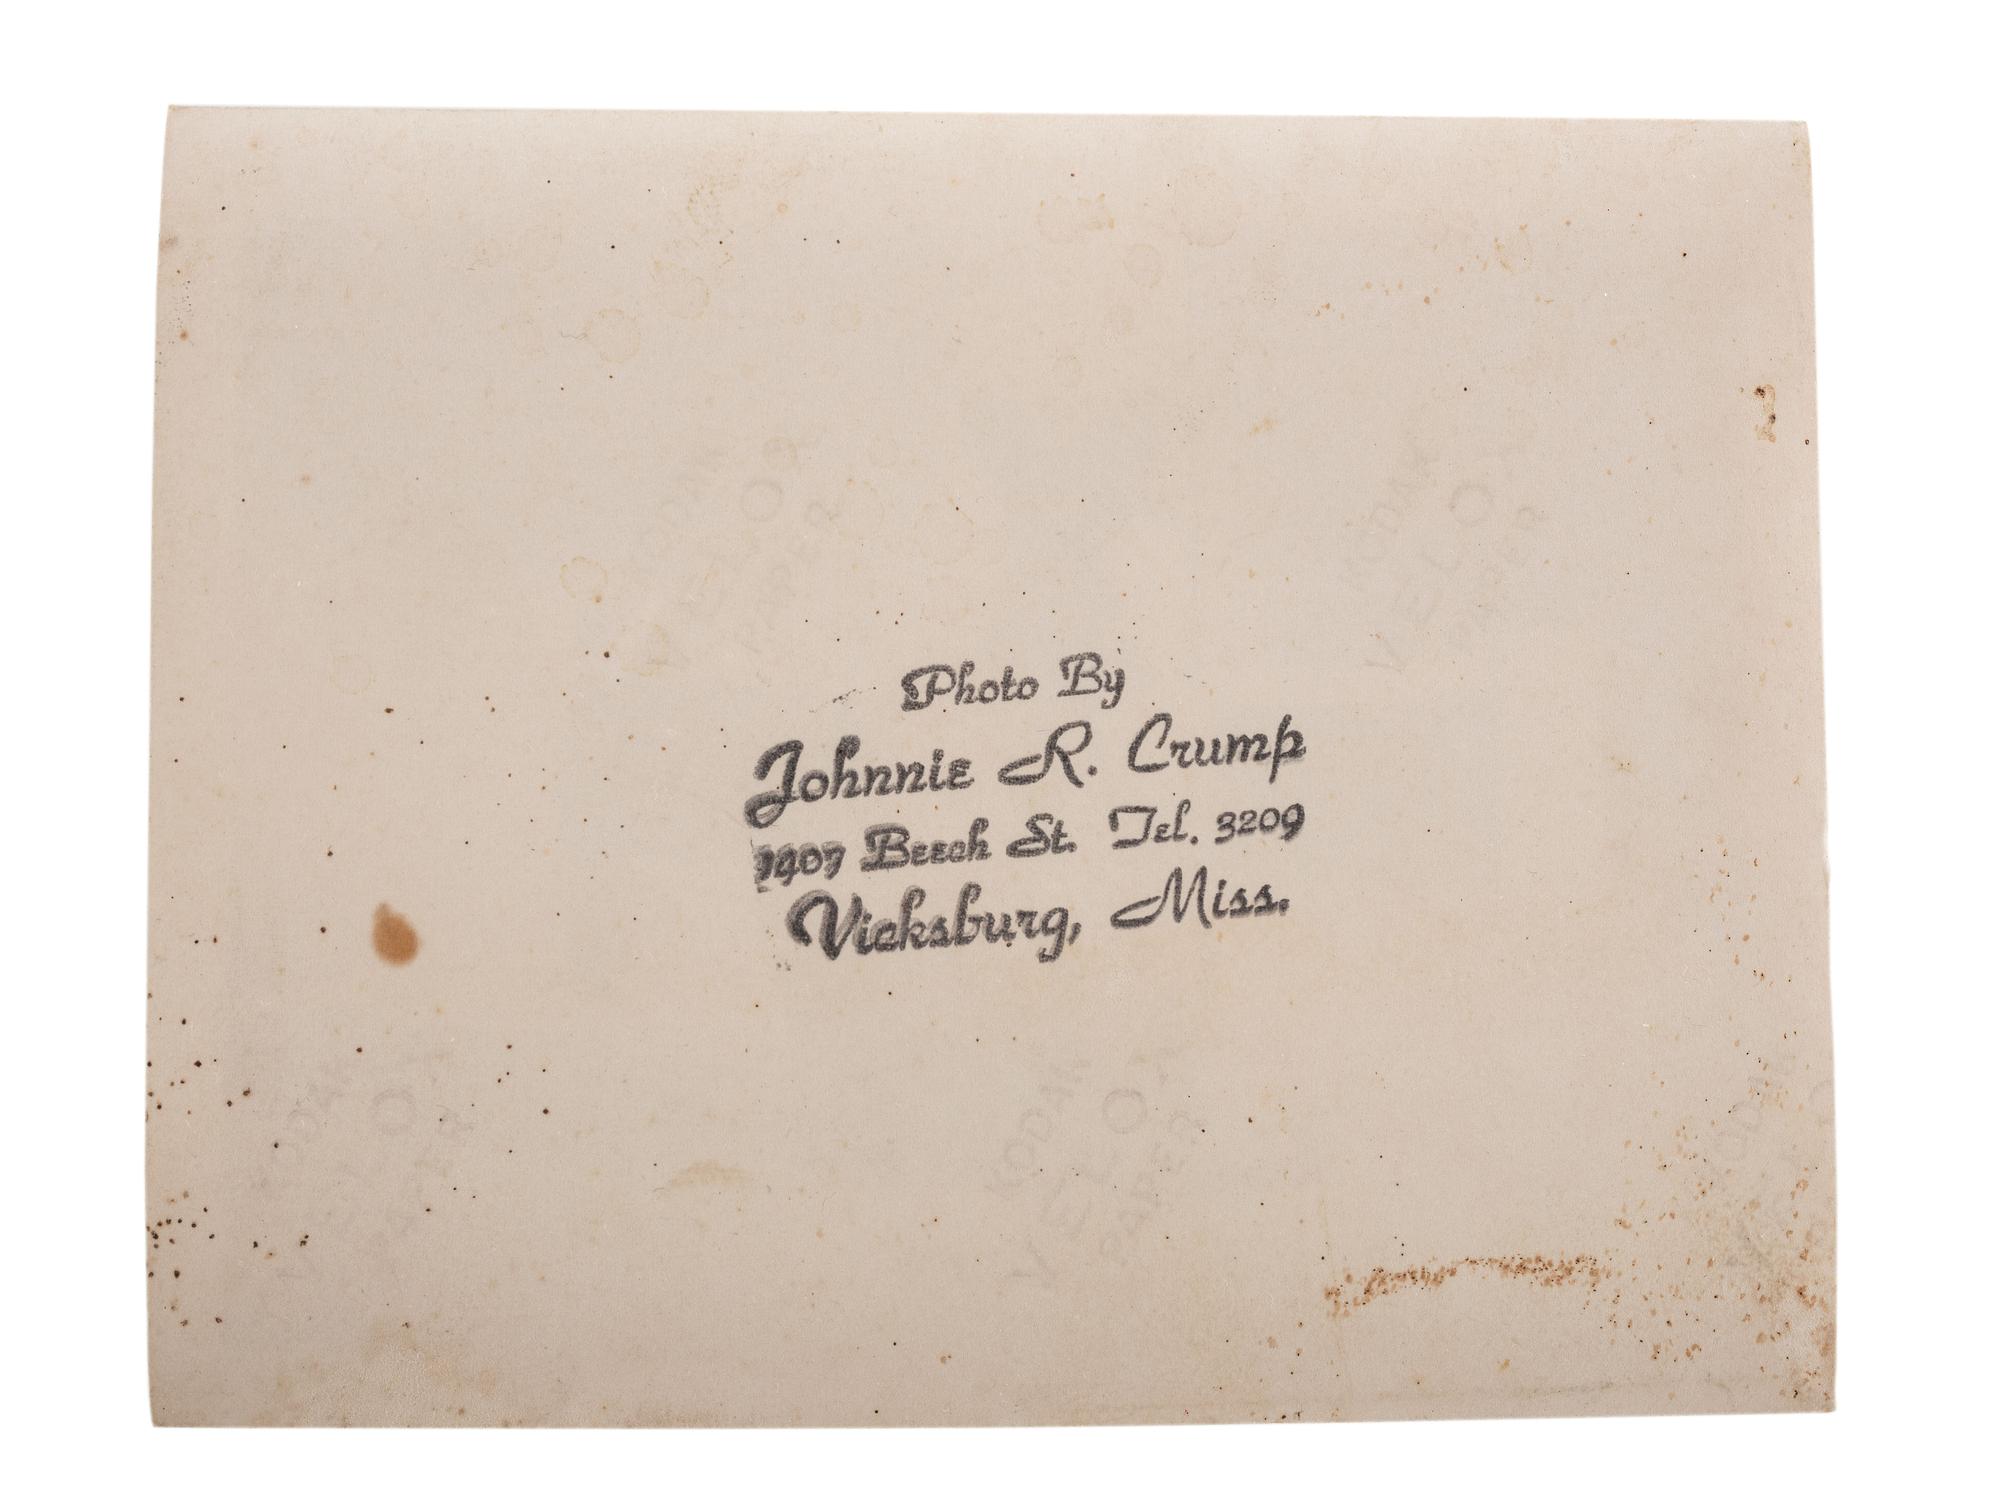 Photo By
Johnnie R. Crump
Beech St. Tel. 3209
Vicksburg, Miss.
KODAK
VELOX
PAPER
KODAK
VELOX
PAPER
KODAK
VELOX
PAPER
KODAK
VELOX
PAPER
KODAK